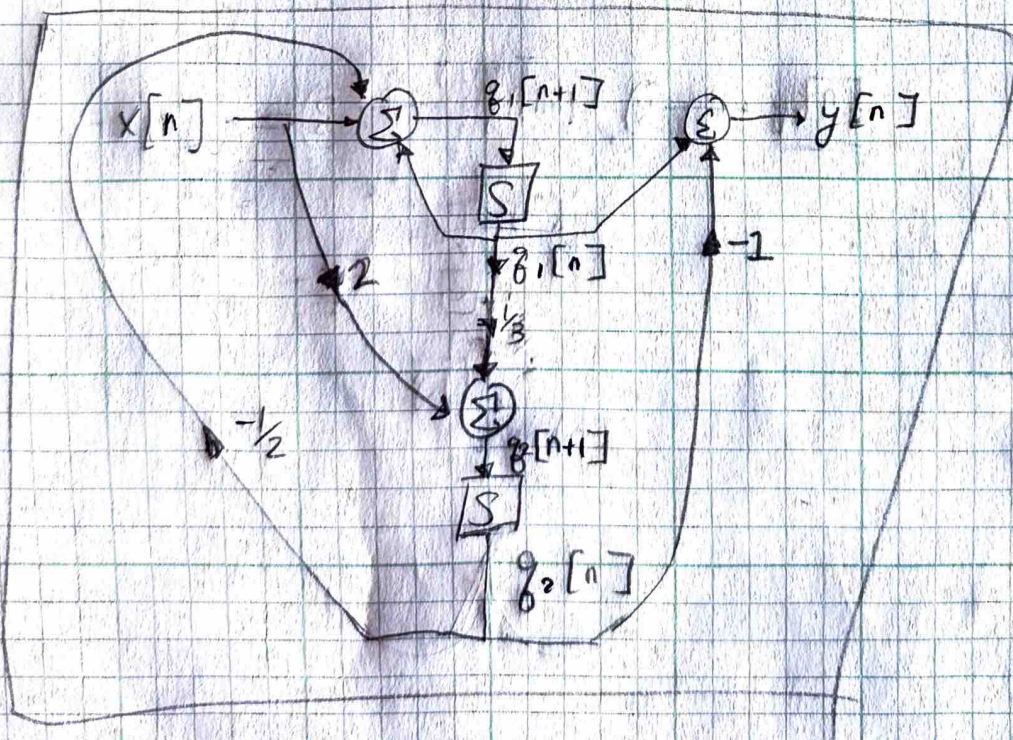 x[n]
Σ
q₁[n+1]
Σ
y[n]
S
q₁[n]
-1
2
1/3
Σ
q₂[n+1]
-1/2
S
q₂[n]